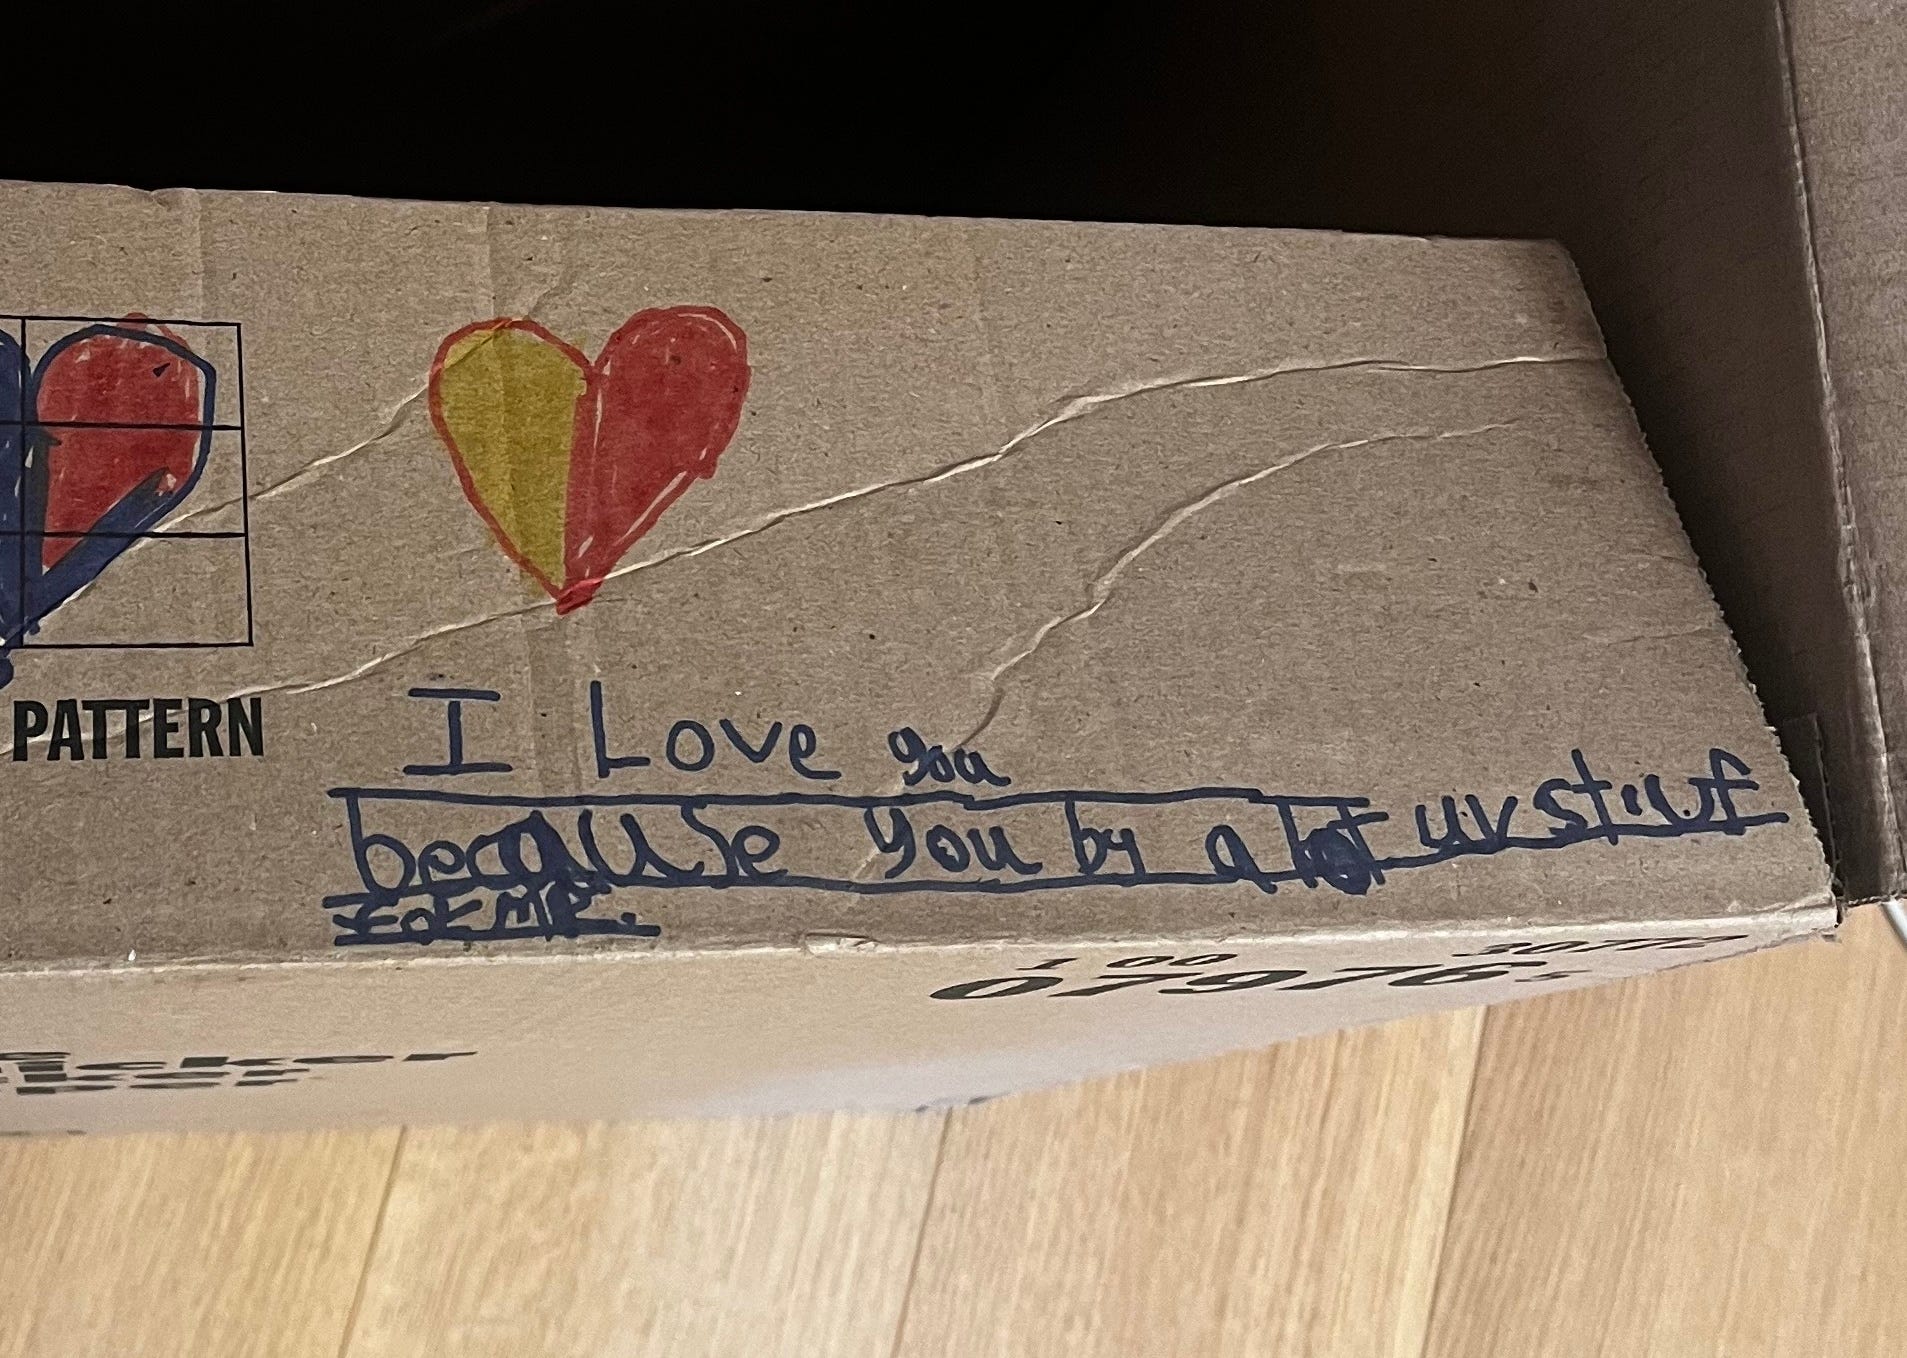 PATTERN
I Love you
because you by a lot uv stiuf
for me.
1 00
07976